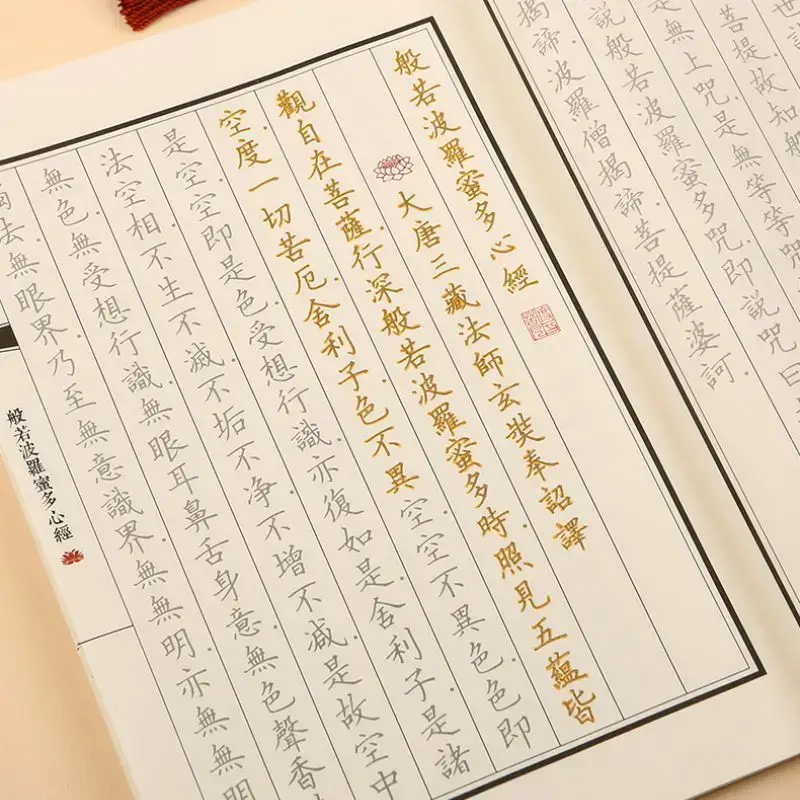 世
菩提故知般
是無上咒是無等等咒
說般若波羅蜜多咒即說咒曰
揭諦.波羅僧揭諦.菩提薩婆訶.
般若波羅蜜多心經
大唐三藏法師玄奘奉詔譯
觀自在菩薩.行深般若波羅蜜多時.照見五蘊皆
空.度一切苦厄.舍利子.色不異空.空不異色.色即
是空.空即是色.受想行識.亦復如是.舍利子.是諸
法空相.不生不滅.不垢不净.不增不減.是故空中
無色.無受想行識.無眼耳鼻舌身意.無色聲香
法.無眼界.乃至無意識界.無無明.亦無無明
般若波羅蜜多心經